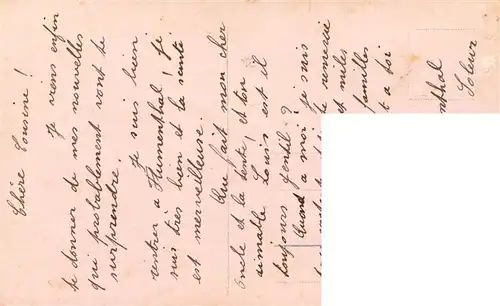 Chère Cousine!
Je viens enfin
te donner de mes nouvelles
qui probablement vont te
surprendre.
Je suis bien
rentrer a Flumenthal! Je
suis très bien et la santé
est merveilleuse.
Que fait mon cher
oncle et la tente! et ton
aimable Louis est il
toujours gentil?
Quand a moi je suis
te remercie
et milles
familles
t a toi
nthal
Soleur